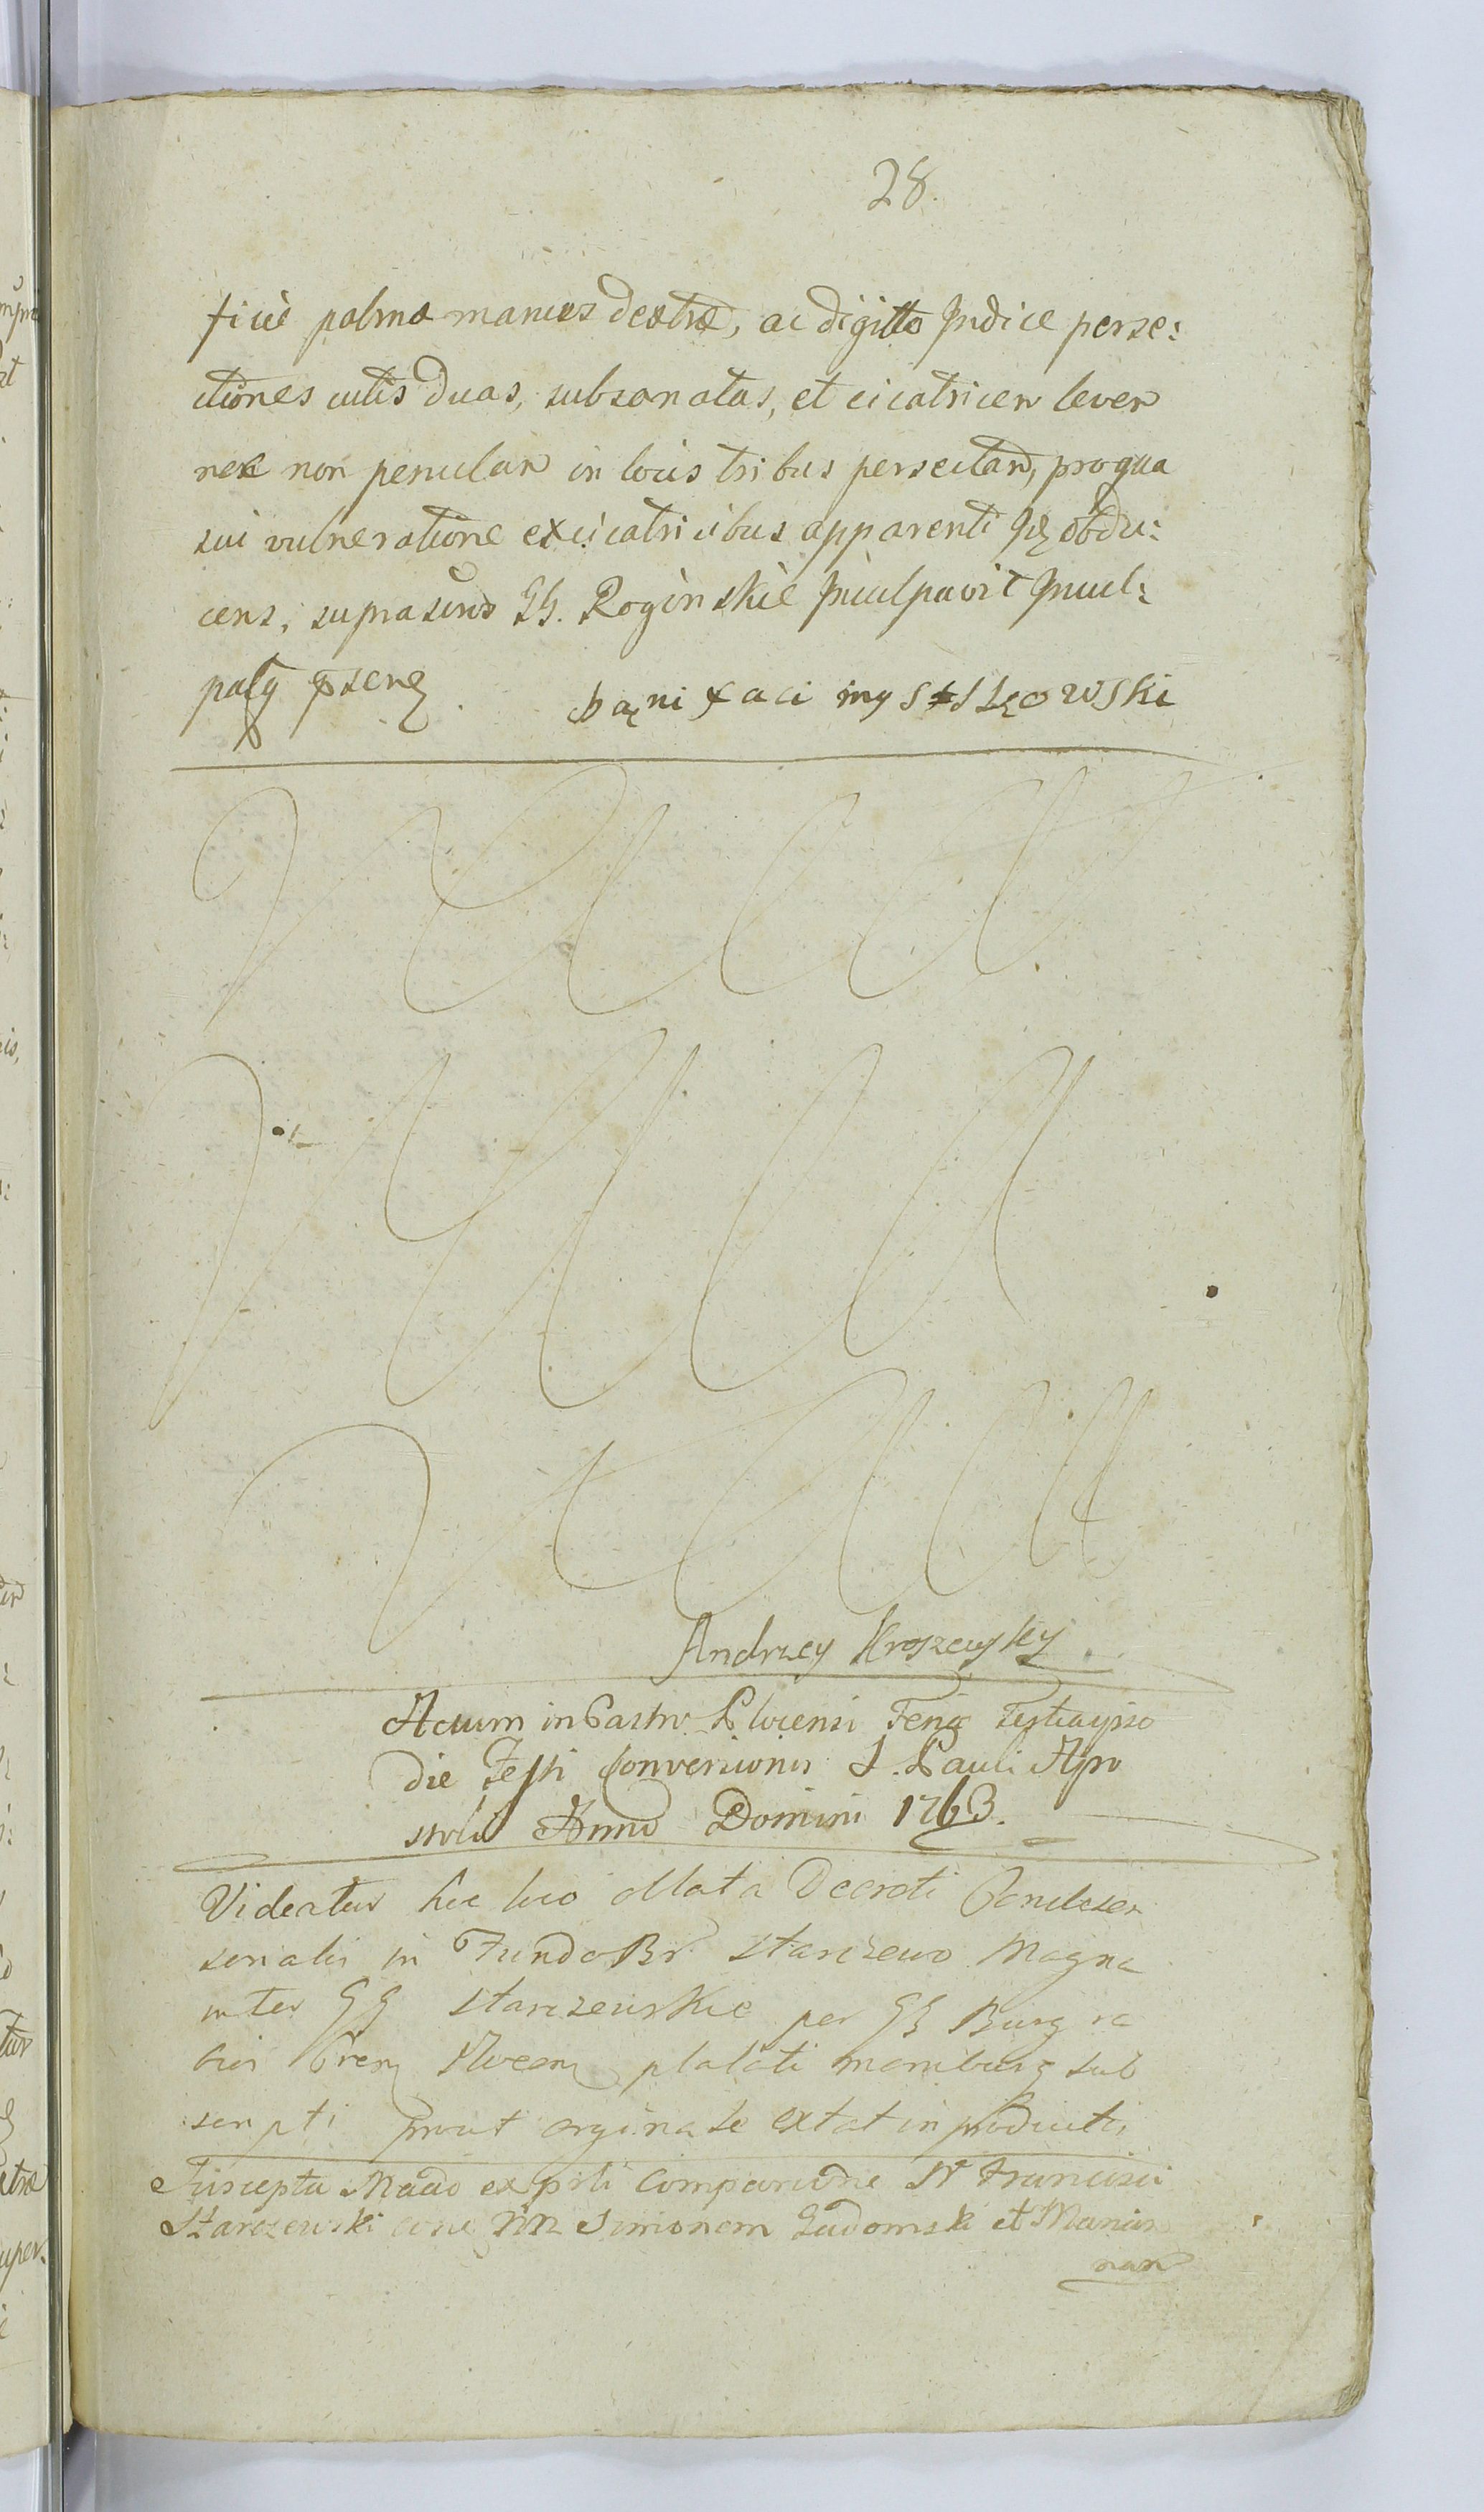 28.
ficiè palmæ manus dextræ, ac digitto Indice perse:
ctiones cutis duas, subsanatas, et cicatricem levem
nec non penulam in locis tribus persectam, pro qua
sui vulneratione ex cicatricibus apparenti se obdu:
cens, suprascrip GG. Rogińskie Inculpavit Incul:
patq pseng
Andrzey Kroszewsky
Actum in Castro Plocensi Feria Tertia ipso
die Festi Conversionis S. Pauli Apo
stoli Anno Domini 1763.
Videatur hic loco oblata Decreti Condescen
sorialis in Fundo Br. Starczewo Magna
inter GG Starczewskie per GG Burgra
bios Cren Plocen platati manibusq sub
scripti prout orginale extat in productis
Suscepta Mado ex psti comparitione N Francisci
Starczewski cone NN Simonem Gadomski et Marian
nam